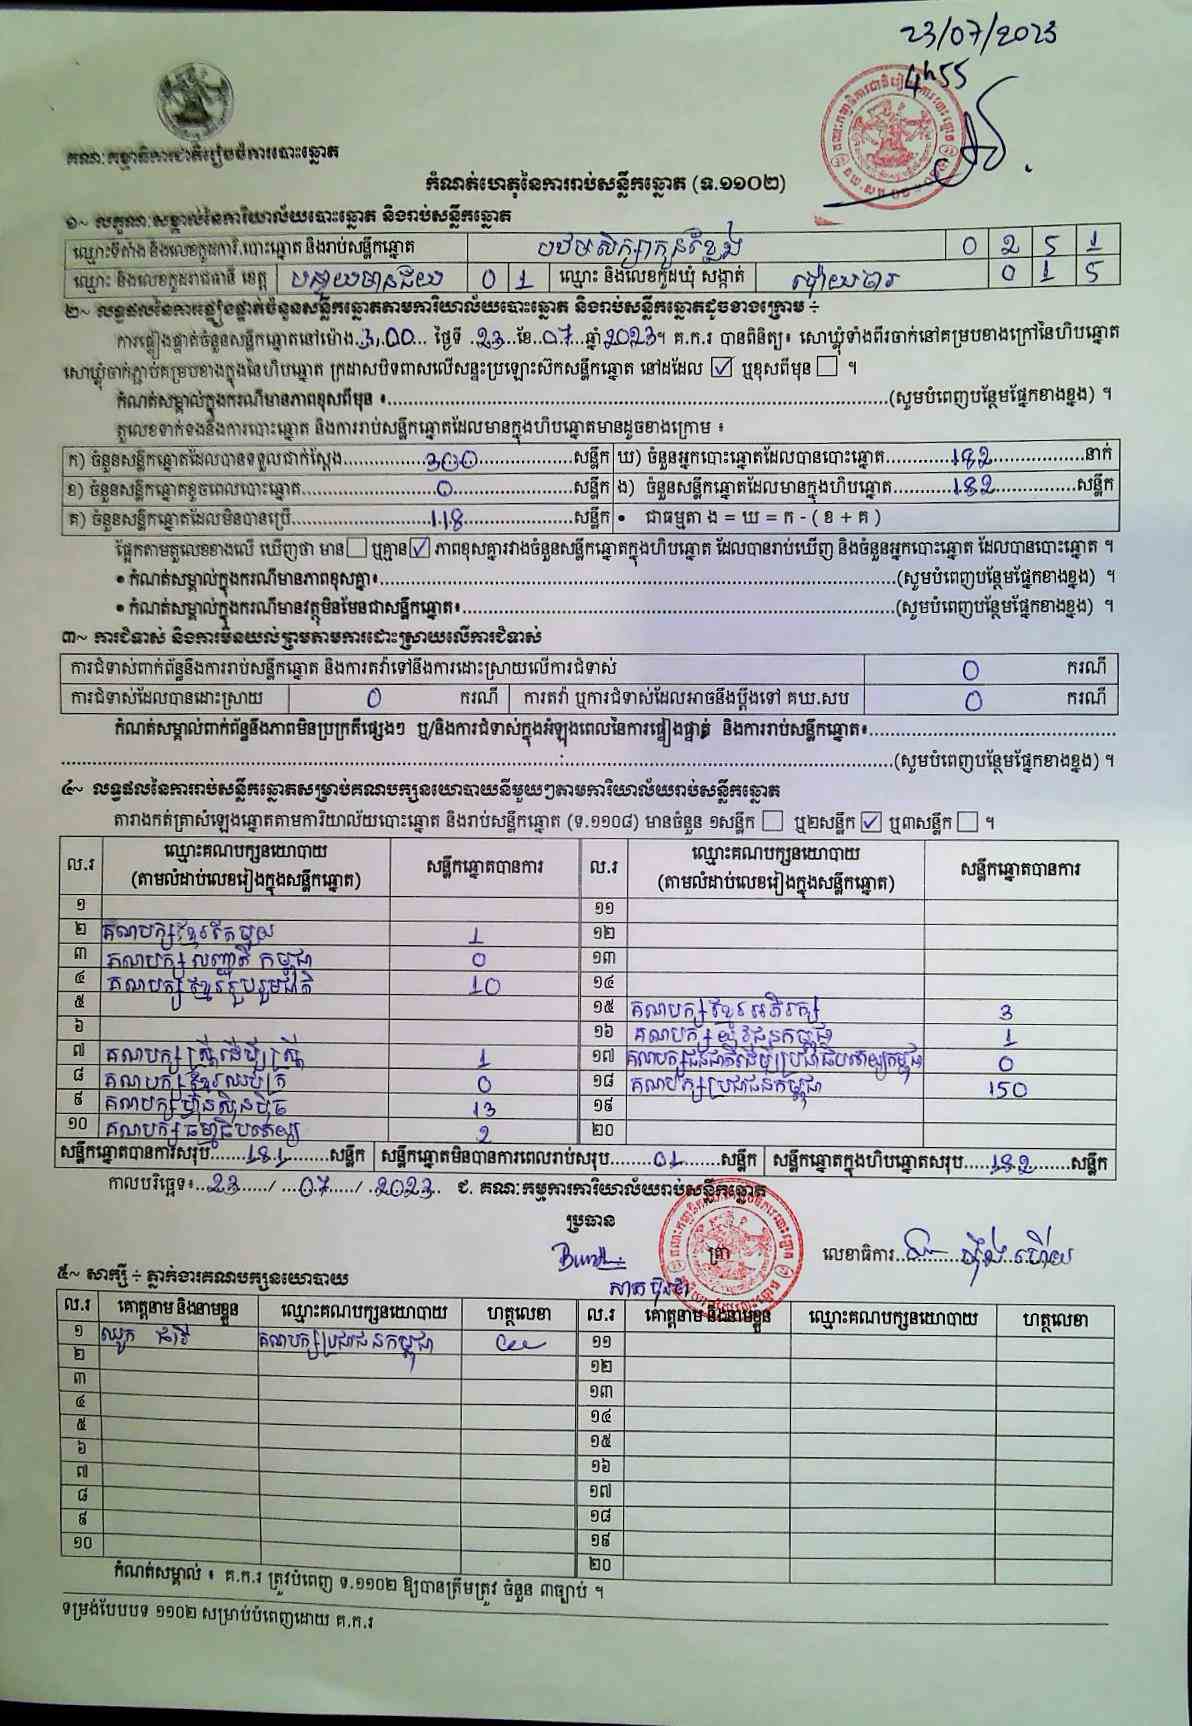 23/07/2023
4h55
គណៈកម្មាធិការជាតិរៀបចំការបោះឆ្នោត
កំណត់ហេតុនៃការរាប់សន្លឹកឆ្នោត (ទ.១១០២)
១~ លក្ខណៈសម្គាល់នៃការិយាល័យបោះឆ្នោត និងរាប់សន្លឹកឆ្នោត
ឈ្មោះទីតាំង និងលេខកូដការិ.បោះឆ្នោត និងរាប់សន្លឹកឆ្នោត បឋមសិក្សាកូនខ្លែង 0 2 5 1
ឈ្មោះ និងលេខកូដរាជធានី ខេត្ត បន្ទាយមានជ័យ 0 1 ឈ្មោះ និងលេខកូដឃុំ សង្កាត់ ប៉ោយចារ 0 1 5
២~ លទ្ធផលនៃការផ្ទៀងផ្ទាត់ចំនួនសន្លឹកឆ្នោតតាមការិយាល័យបោះឆ្នោត និងរាប់សន្លឹកឆ្នោតដូចខាងក្រោម ៖
ការផ្ទៀងផ្ទាត់ចំនួនសន្លឹកឆ្នោតនៅម៉ោង.3,00... ថ្ងៃទី .23..ខែ..07...ឆ្នាំ2023។ គ.ក.រ បានពិនិត្យ៖ សោឃ្លុំទាំងពីរចាក់នៅគម្របខាងក្រៅនៃហិបឆ្នោត
សោឃ្លុំចាក់ភ្ជាប់គម្របខាងក្នុងនៃហិបឆ្នោត ក្រដាសបិទពាសលើសន្ទះប្រឡោះស៊កសន្លឹកឆ្នោត នៅដដែល ☑ ឬខុសពីមុន ☐ ។
កំណត់សម្គាល់ក្នុងករណីមានភាពខុសពីមុន ៖..........(សូមបំពេញបន្ថែមផ្នែកខាងខ្នង) ។
តួលេខទាក់ទងនឹងការបោះឆ្នោត និងការរាប់សន្លឹកឆ្នោតដែលមានក្នុងហិបឆ្នោតមានដូចខាងក្រោម ៖
ក) ចំនួនសន្លឹកឆ្នោតដែលបានទទួលជាក់ស្តែង.......300.......សន្លឹក ឃ) ចំនួនអ្នកបោះឆ្នោតដែលបានបោះឆ្នោត.......182.......នាក់
ខ) ចំនួនសន្លឹកឆ្នោតខូចពេលបោះឆ្នោត.......0.......សន្លឹក ង) ចំនួនសន្លឹកឆ្នោតដែលមានក្នុងហិបឆ្នោត.......182.......សន្លឹក
គ) ចំនួនសន្លឹកឆ្នោតដែលមិនបានប្រើ.......118.......សន្លឹក • ជាធម្មតា ង = ឃ = ក - ( ខ + គ )
ផ្អែកតាមតួលេខខាងលើ ឃើញថា មាន ☐ ឬគ្មាន ☑ ភាពខុសគ្នារវាងចំនួនសន្លឹកឆ្នោតក្នុងហិបឆ្នោត ដែលបានរាប់ឃើញ និងចំនួនអ្នកបោះឆ្នោត ដែលបានបោះឆ្នោត ។
• កំណត់សម្គាល់ក្នុងករណីមានភាពខុសគ្នា៖..........(សូមបំពេញបន្ថែមផ្នែកខាងខ្នង) ។
• កំណត់សម្គាល់ក្នុងករណីមានវត្ថុមិនមែនជាសន្លឹកឆ្នោត៖..........(សូមបំពេញបន្ថែមផ្នែកខាងខ្នង) ។
៣~ ការជំទាស់ និងការមិនយល់ព្រមតាមការដោះស្រាយលើការជំទាស់
ការជំទាស់ពាក់ព័ន្ធនឹងការរាប់សន្លឹកឆ្នោត និងការតវ៉ាទៅនឹងការដោះស្រាយលើការជំទាស់ 0 ករណី
ការជំទាស់ដែលបានដោះស្រាយ 0 ករណី ការតវ៉ា ឬការជំទាស់ដែលអាចនឹងប្តឹងទៅ គឃ.សប 0 ករណី
កំណត់សម្គាល់ពាក់ព័ន្ធនឹងភាពមិនប្រក្រតីផ្សេងៗ ឬ/និងការជំទាស់ក្នុងអំឡុងពេលនៃការផ្ទៀងផ្ទាត់ និងការរាប់សន្លឹកឆ្នោត៖..........
..........(សូមបំពេញបន្ថែមផ្នែកខាងខ្នង) ។
៤~ លទ្ធផលនៃការរាប់សន្លឹកឆ្នោតសម្រាប់គណបក្សនយោបាយនីមួយៗតាមការិយាល័យរាប់សន្លឹកឆ្នោត
តារាងកត់ត្រាសំឡេងឆ្នោតតាមការិយាល័យបោះឆ្នោត និងរាប់សន្លឹកឆ្នោត (ទ.១១០៨) មានចំនួន ១សន្លឹក ☐ ឬ២សន្លឹក ☑ ឬ៣សន្លឹក ☐ ។
ល.រ ឈ្មោះគណបក្សនយោបាយ (តាមលំដាប់លេខរៀងក្នុងសន្លឹកឆ្នោត) សន្លឹកឆ្នោតបានការ ល.រ ឈ្មោះគណបក្សនយោបាយ (តាមលំដាប់លេខរៀងក្នុងសន្លឹកឆ្នោត) សន្លឹកឆ្នោតបានការ
១ ១១
២ គណបក្សខ្មែរតែមួយ 1 ១២
៣ គណបក្សសញ្ជាតិកម្ពុជា 0 ១៣
៤ គណបក្សខ្មែររួបរួមជាតិ 10 ១៤
៥ ១៥ គណបក្សខ្មែរអភិរក្ស 3
៦ ១៦ គណបក្សយុវជនកម្ពុជា 1
៧ គណបក្សស្ត្រីដើម្បីស្ត្រី 1 ១៧ គណបក្សជនជាតិដើម្បីប្រជាធិបតេយ្យកម្ពុជា 0
៨ គណបក្សខ្មែរឈប់ក្រ 0 ១៨ គណបក្សប្រជាជនកម្ពុជា 150
៩ គណបក្សហ៊្វុនស៊ិនប៉ិច 13 ១៩
១០ គណបក្សធម្មាធិបតេយ្យ 2 ២០
សន្លឹកឆ្នោតបានការសរុប.......181.......សន្លឹក សន្លឹកឆ្នោតមិនបានការពេលរាប់សរុប.......01.......សន្លឹក សន្លឹកឆ្នោតក្នុងហិបឆ្នោតសរុប.......182.......សន្លឹក
កាលបរិច្ឆេទ៖..23...../....07...../..2023.. ជ. គណៈកម្មការការិយាល័យរាប់សន្លឹកឆ្នោត
ប្រធាន ត្រា លេខាធិការ
៥~ សាក្សី ៖ ភ្នាក់ងារគណបក្សនយោបាយ
ល.រ គោត្តនាម និងនាមខ្លួន ឈ្មោះគណបក្សនយោបាយ ហត្ថលេខា ល.រ គោត្តនាម និងនាមខ្លួន ឈ្មោះគណបក្សនយោបាយ ហត្ថលេខា
១ ឈូក គណបក្សប្រជាជនកម្ពុជា ១១
២ ១២
៣ ១៣
៤ ១៤
៥ ១៥
៦ ១៦
៧ ១៧
៨ ១៨
៩ ១៩
១០ ២០
កំណត់សម្គាល់ ៖ គ.ក.រ ត្រូវបំពេញ ទ.១១០២ ឱ្យបានត្រឹមត្រូវ ចំនួន ៣ច្បាប់ ។
ទម្រង់បែបបទ ១១០២ សម្រាប់បំពេញដោយ គ.ក.រ